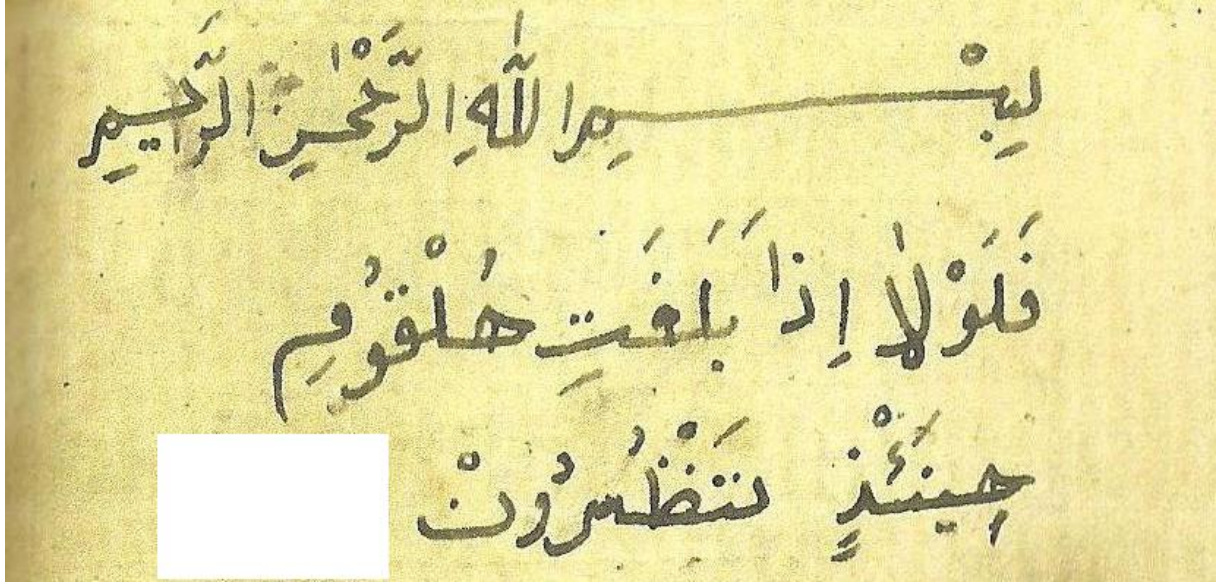 بِسْمِ اللّٰهِ الرَّحْمٰنِ الرَّحِيمِ
فَلَوْلٰا اِذَا بَلَغَتِ حُلْقُومِ
حِينَئْذٍ تَنْظُرُونْ